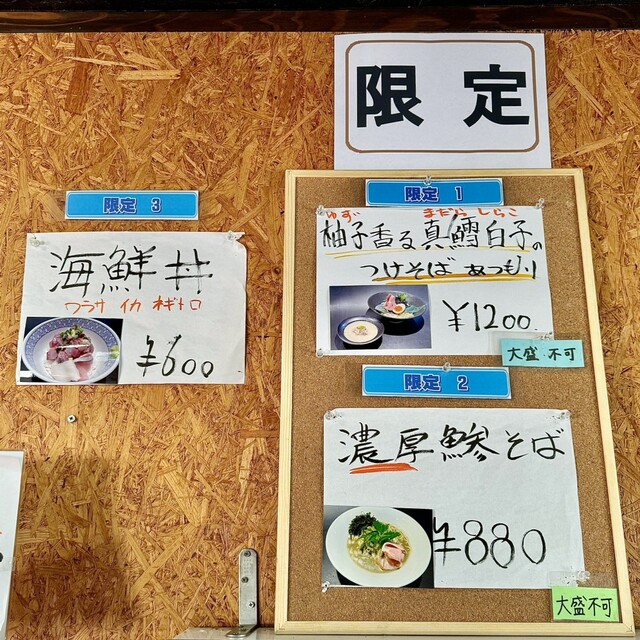 限定
限定 1
ゆず まだら しらこ
柚子香る真鱈白子の
つけそば あつもり
¥1200
大盛 不可
限定 2
濃厚鯵そば
¥880
大盛不可
限定 3
海鮮丼
ワラサ イカ ネギトロ
¥600